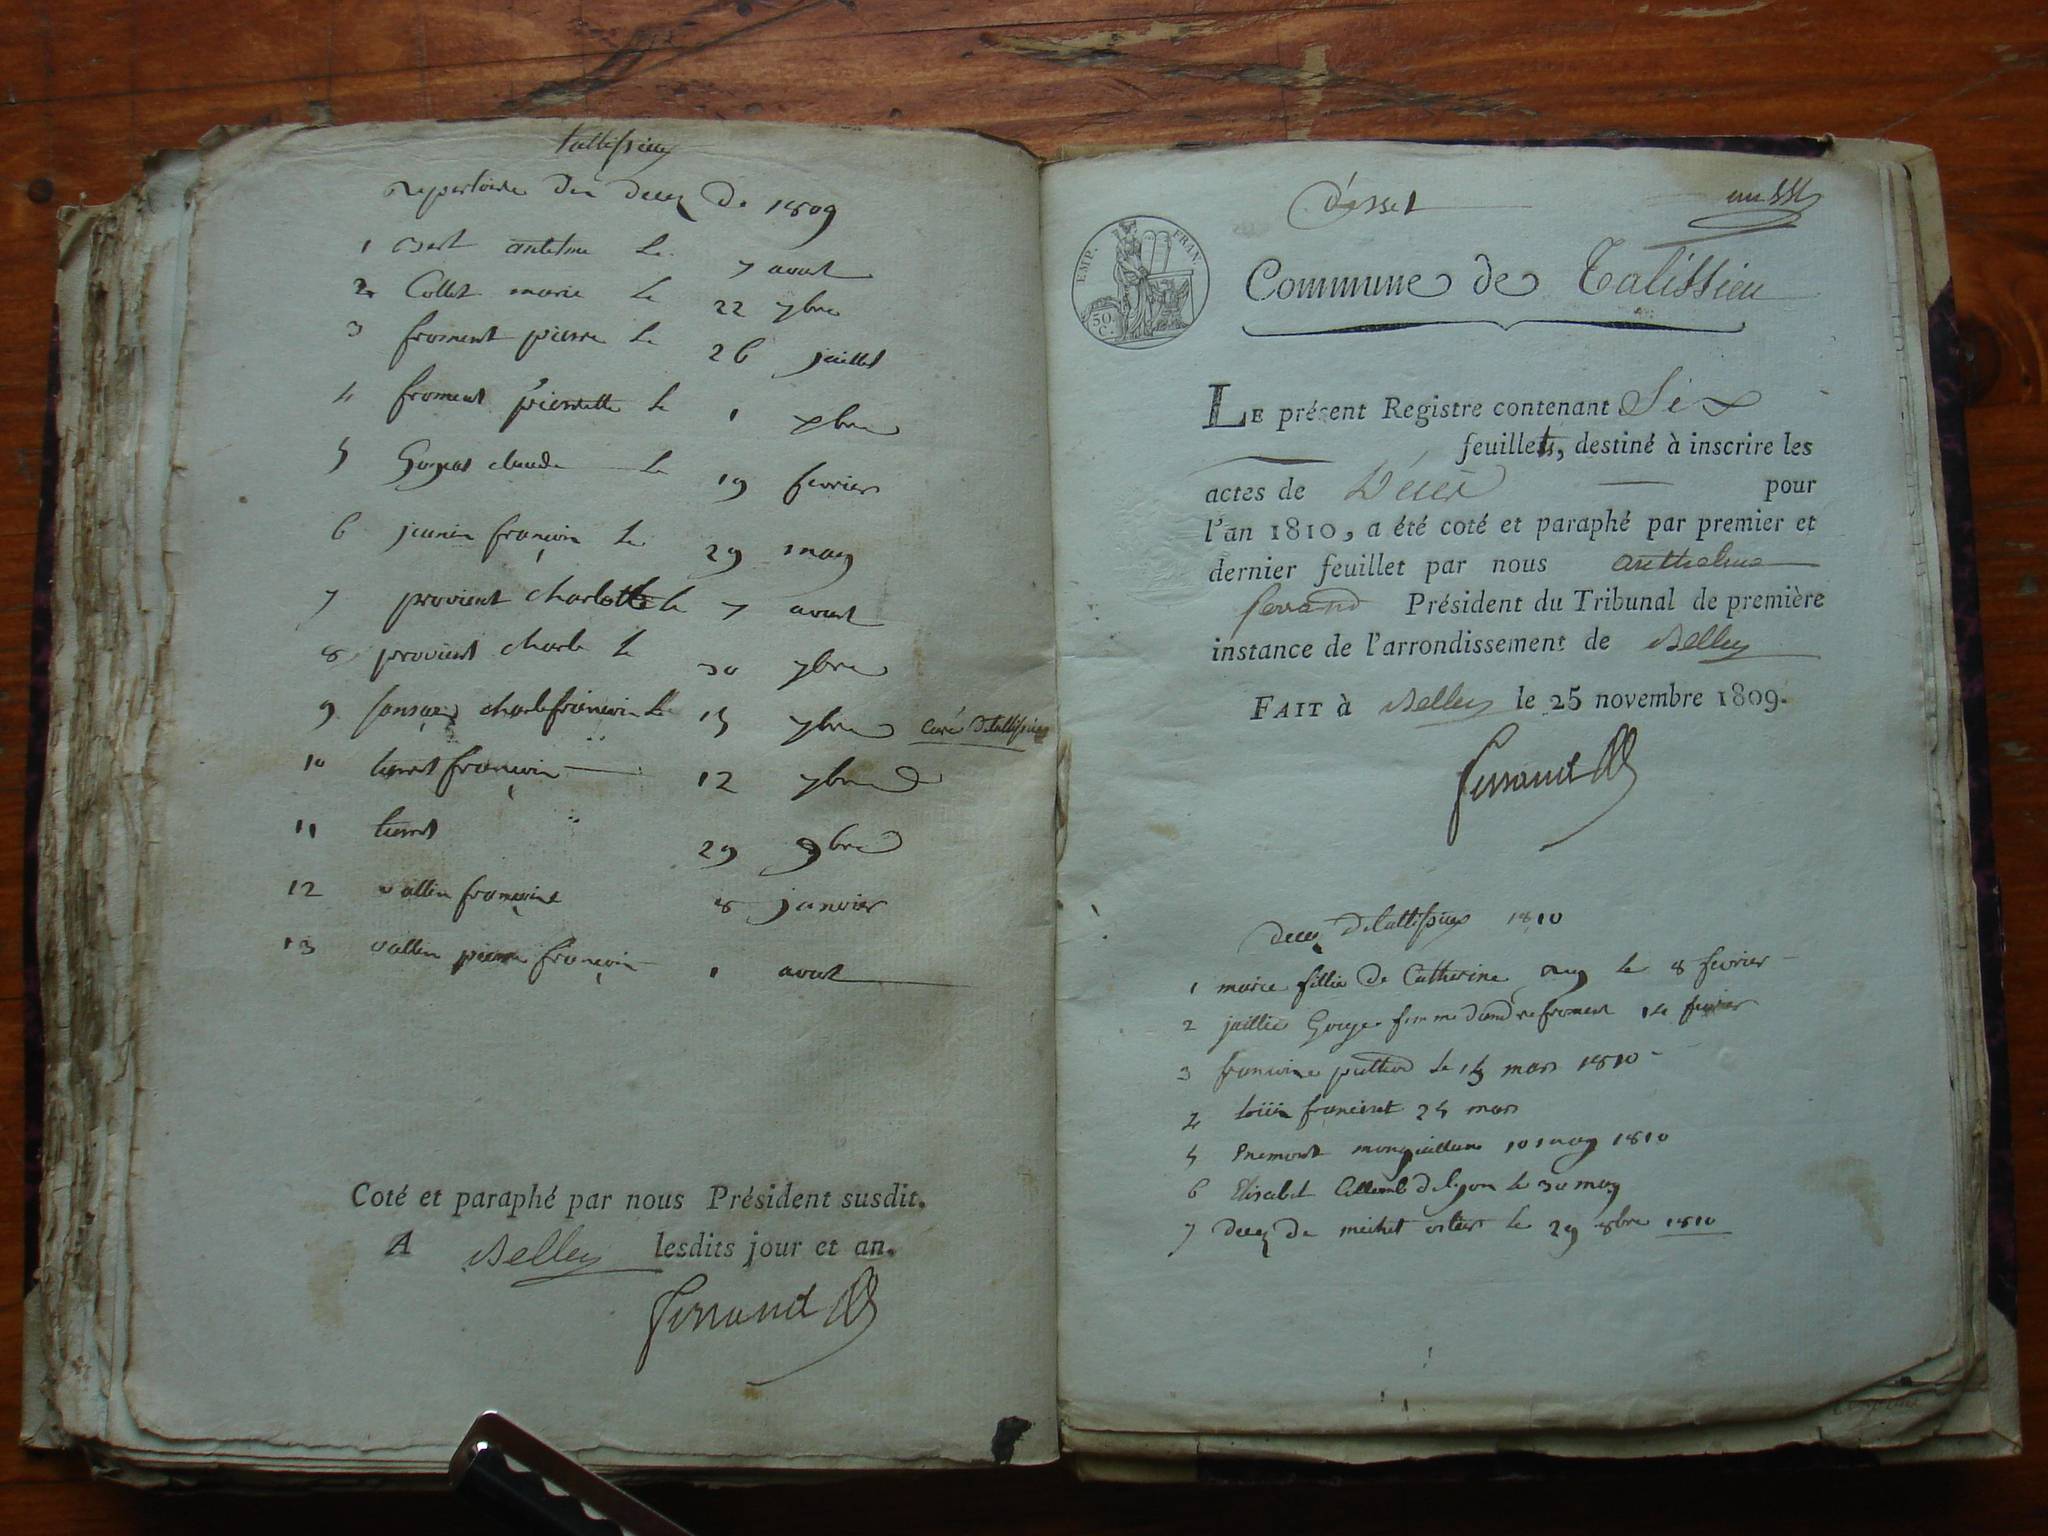 tallissieu
repertoire des deces de 1809
1 Bert antelme le 7 avout
2 Collet marie le 22 7bre
3 froment pierre le 26 juillet
4 froment pierrette le 1 xbre
5 claude le 19 fevrier
6 jeunin françois le 29 may
7 provient charlotte le 7 avout
8 provient charle le 30 7bre
9 charlefrançois le 15 7bre curé de tallissieu
10 françois 12 7bre
11 29 9bre
12 vallin françoise 8 janvier
13 vallin pierre françois 1 avout
Coté et paraphé par nous Président susdit.
A Belley lesdits jour et an.
Ferrand
EMP. FRAN.
50 C.
Commune de Talissieu
LE présent Registre contenant Six
feuillets, destiné à inscrire les
actes de Décès pour
l'an 1810, a été coté et paraphé par premier et
dernier feuillet par nous anthelme
ferrand Président du Tribunal de première
instance de l'arrondissement de Belley
FAIT à Belley le 25 novembre 1809.
Ferrand
deces de tallissieu 1810
1 marie fillie de Catherine le 8 fevrier
2 femme dandre froment 14 fevrier
3 françoise le 15 mars 1810
4 25 mars
5 10 may 1810
6 Elisabet de lyon le 30 may
7 deces de michel le 29 8bre 1810